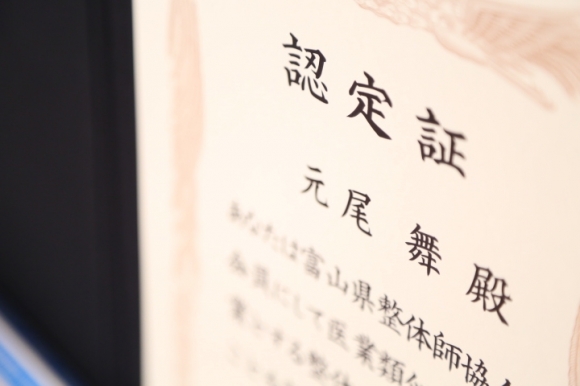 認定証
元尾 舞 殿
あなたは富山県整体師協会
会員にして医業類
整体